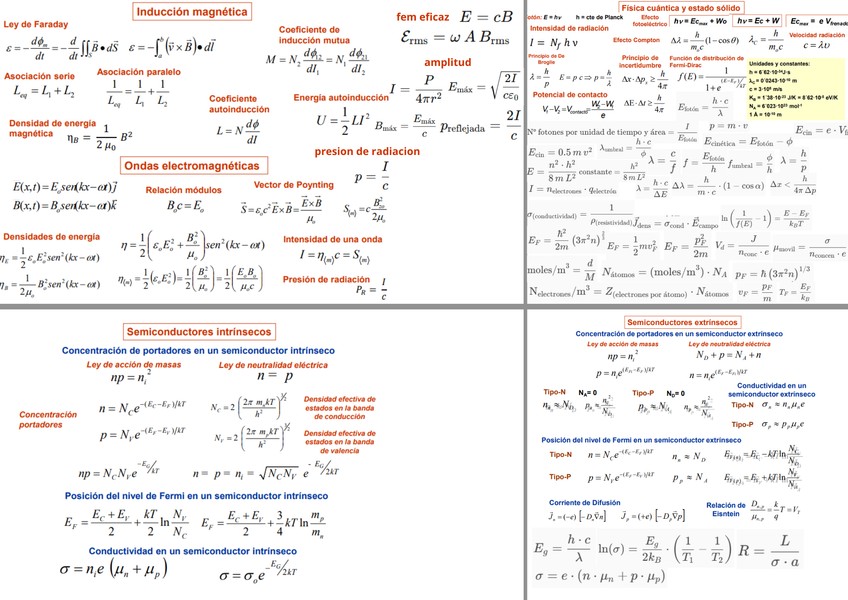 Inducción magnética
Ley de Faraday
ε = −dϕₘ/dt = −d/dt ∬ₛ B⃗•dS⃗
ε = −∫ₐᵇ (v⃗ × B⃗)•dl⃗
Coeficiente de
inducción mutua
M = N₂ dϕ₁₂/dI₁ = N₁ dϕ₂₁/dI₂
fem eficaz E = cB
ℰrms = ω A Brms
amplitud
I = P/4πr²
Emáx = √(2I/cε₀)
Bmáx = Emáx/c
preflejada = 2I/c
Asociación serie
Leq = L₁ + L₂
Asociación paralelo
1/Leq = 1/L₁ + 1/L₂
Coeficiente
autoinducción
L = N dϕ/dI
Energía autoinducción
U = 1/2 LI²
Densidad de energía
magnética
ηB = 1/(2 μ₀) B²
presion de radiacion
p = I/c
Ondas electromagnéticas
E(x,t) = Eₒsen(kx−ωt)j⃗
B(x,t) = Bₒsen(kx−ωt)k⃗
Relación módulos
Bₒc = Eₒ
Vector de Poynting
S⃗ = εₒc²E⃗×B⃗ = E⃗×B⃗/μₒ
Densidades de energía
ηE = 1/2 εₒEₒsen²(kx−ωt)
ηB = 1/(2μₒ) Bₒ²sen²(kx−ωt)
η = 1/2(εₒEₒ² + Bₒ²/μₒ)sen²(kx−ωt)
η(m) = 1/2(εₒEₒ²) = 1/2(Bₒ²/μₒ) = 1/2(EₒBₒ/μₒc)
Intensidad de una onda
I = η(m)c = S(m)
Presión de radiación
PR = I/c
Física cuántica y estado sólido
E = hν h = cte de Planck
Efecto
fotoeléctrico
hν = Ecmax + Wo
hν = Ec + W
Intensidad de radiación
I = Nf h ν
Efecto Compton
Δλ = h/mₒc (1−cosθ)
λC = h/mₒc
Velocidad radiación
c = λυ
Principio de De
Broglie
λ = h/p
E = p c ⇒ p = h/λ
Principio de
incertidumbre
Δx·Δpₓ ≥ h/4π
ΔE·Δt ≥ h/4π
Función de distribución de
Fermi-Dirac
Efotón = h·c/λ
Unidades y constantes:
h = 6´62·10⁻³⁴J·s
λC = 0'0243·10⁻¹⁰ m
c = 3·10⁸ m/s
KB = 1´38·10⁻²³ J/K = 8'62·10⁻⁵ eV/K
NA = 6'023·10²³ mol⁻¹
1 Å = 10⁻¹⁰ m
Potencial de contacto
Nº fotones por unidad de tiempo y área = I/Efotón
p = m·v
Ecinética = Efotón − ϕ
Ecin = 0.5 m v²
λumbral = h·c/ϕ
λ = c/f
f = Efotón/h
fumbral = ϕ/h
λ = h/p
E = n²·h²/(8 m L²)
constante = h²/(8 m L²)
I = nelectrones · qelectrón
λ = h·c/ΔE
Δλ = h/(m·c) · (1 − cos α)
Δx < h/(4π Δp)
σ(conductividad) = 1/ρ(resistividad)
Jdens = σcond · Ecampo
ln(1/f(E) − 1) = (E − EF)/kBT
EF = ħ²/2m (3π²n)^2/3
EF = 1/2 mvF²
EF = pF²/2m
Vd = J/(nconc · e)
μmovil = σ/(nconcn · e)
moles/m³ = d/M
Nátomos = (moles/m³) · NA
pF = ħ (3π²n)^1/3
Nelectrones/m³ = Z(electrones por átomo) · Nátomos
vF = pF/m
TF = EF/kB
Semiconductores intrínsecos
Concentración de portadores en un semiconductor intrínseco
Ley de acción de masas
np = nᵢ²
Ley de neutralidad eléctrica
n = p
Concentración
portadores
n = NC e^−(EC−EF)/kT
p = NV e^−(EF−EV)/kT
NC = 2 (2π mₙkT/h²)^3/2
Densidad efectiva de
estados en la banda
de conducción
NV = 2 (2π mₚkT/h²)^3/2
Densidad efectiva de
estados en la banda
de valencia
np = NC NV e^−EG/kT
n = p = nᵢ = √(NC NV) e^−EG/2kT
Posición del nivel de Fermi en un semiconductor intrínseco
EF = (EC + EV)/2 + kT/2 ln NV/NC
EF = (EC + EV)/2 + 3/4 kT ln mₚ/mₙ
Conductividad en un semiconductor intrínseco
σ = nᵢe (μₙ + μₚ)
σ = σₒe^−EG/2kT
Semiconductores extrínsecos
Concentración de portadores en un semiconductor extrínseco
Ley de acción de masas
np = nᵢ²
Ley de neutralidad eléctrica
ND + p = NA + n
Tipo-N NA= 0
Tipo-P ND= 0
Conductividad en un
semiconductor extrínseco
Tipo-N σₙ ≈ nₙμₙe
Tipo-P σₚ ≈ pₚμₚe
Posición del nivel de Fermi en un semiconductor extrínseco
Tipo-N n = NC e^−(EC−EF)/kT nₙ ≈ ND
Tipo-P p = NV e^−(EF−EV)/kT pₚ ≈ NA
Corriente de Difusión
J⃗ₙ = (−e) [−Dₙ∇⃗n]
J⃗ₚ = (+e) [−Dₚ∇⃗p]
Relación de
Eisntein
Dₙ,ₚ/μₙ,ₚ = k/q T = VT
Eg = h·c/λ
ln(σ) = Eg/2kB · (1/T₁ − 1/T₂)
R = L/(σ·a)
σ = e · (n · μₙ + p · μₚ)